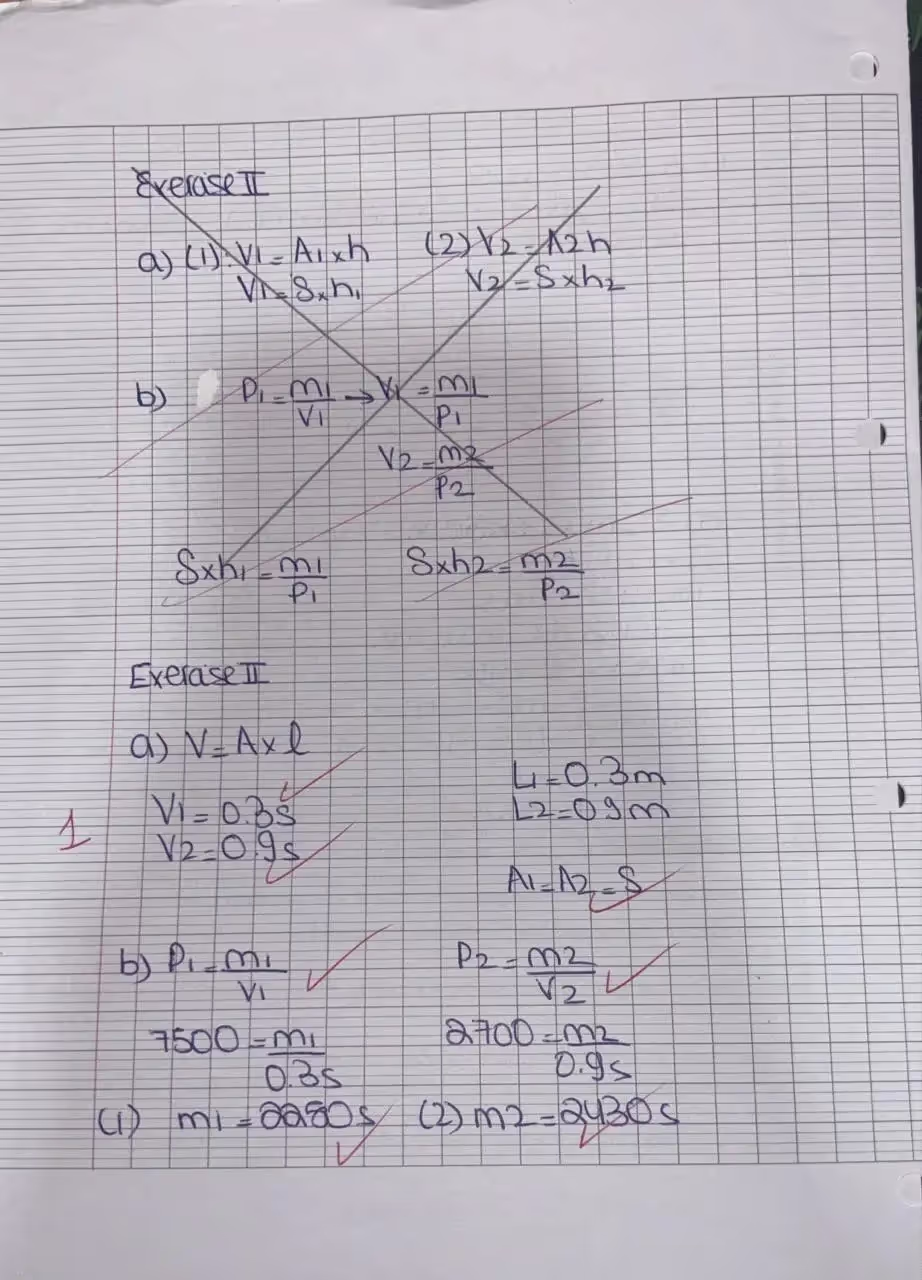 Exerase II
a) (1) V1 = A1 x h (2) V2 = A2 h
V1 = S x h1 V2 = S x h2
b) P1 = m1/V1 → V1 = m1/P1
V2 = m2/P2
S x h1 = m1/P1 S x h2 = m2/P2
Exerase II
a) V = A x l
L1 = 0.3m
V1 = 0.3s L2 = 0.9m
1
V2 = 0.9s
A1 = A2 = S
b) P1 = m1/V1 P2 = m2/V2
7500 = m1/0.3s 2700 = m2/0.9s
(1) m1 = 2250s (2) m2 = 2430s